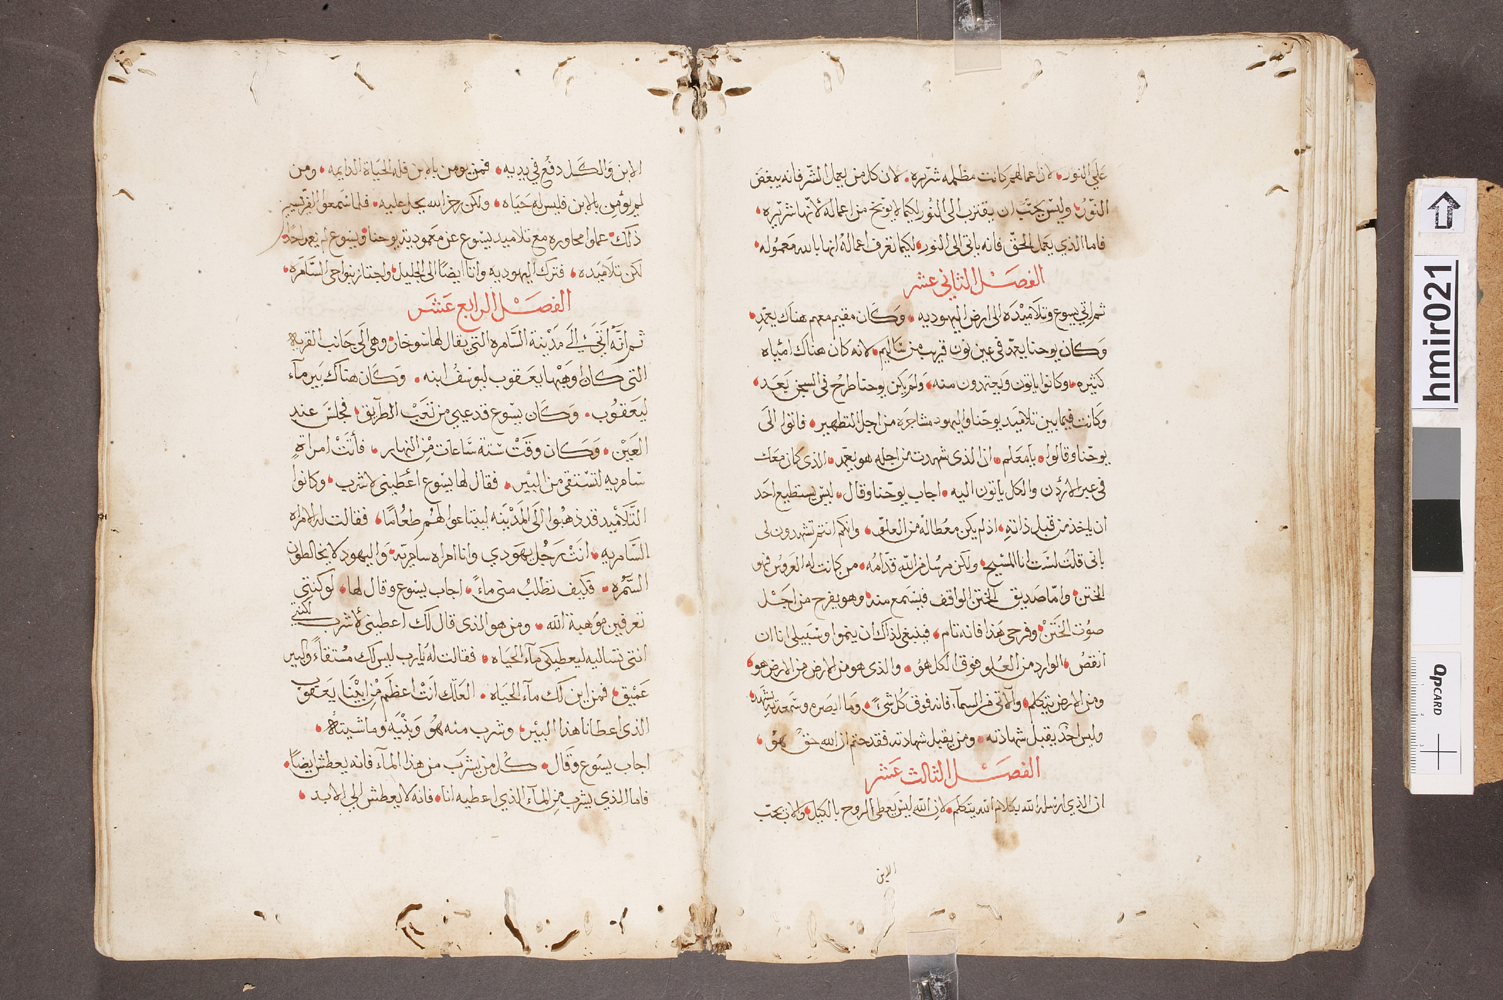 علي النور • لان اعمالهم كانت مظلمه شريره • لان كل من يعمل الشر فانه يبغض
النور • وليس يحب ان يقترب الي النور لكيما لا يوبخ من اعماله لانها شريره •
فاما الذي يعمل الحق فانه ياتي الي النور • لكيما تعرف اعماله انها بالله معموله •
الفصل الثاني عشر
ثم اتي يسوع وتلاميذه الي ارض اليهوديه • وكان مقيم معهم هناك يعمد •
وكان يوحنا يعمد في عين نون قريب من ساليم • لانه كان هناك امياه
كثيره • وكانوا ياتون ويعتمدون منه • ولم يكن يوحنا طرح في السجن بعد •
وكانت فيما بين تلاميذ يوحنا واليهود مشاجره من اجل التطهير • فاتوا الي
يوحنا وقالوا • يا معلم • ان الذي شهدت من اجله هو يعمد • الذي كان معك
في عبر الاردن والكل ياتون اليه • اجاب يوحنا وقال • ليس يستطيع احد
ان ياخذ من قبل ذاته • اذ لم يكن معطا له من العلو • وانكم انتم تشهدون لي
باني قلت لست انا المسيح • ولكن مرسل من الله قدامه • من كانت له العروس فهو
الختن • واما صديق الختن الواقف فيسمع منه • وهو يفرح من اجل
صوت الختن • وفرحي هذا فانه تام • فينبغي لذاك ان ينموا وسبيلي انا ان
انقص • الوارد من العلو فوق الكل هو • والذي هو من الارض من الارض هو •
ومن الارض يتكلم • والاتي من السماء فانه فوق كل شيء • وما ابصره وسمعه به يشهد •
وليس احد يقبل شهادته • ومن يقبل شهادته فقد ختم ان الله حق هو •
الفصل الثالث عشر
ان الذي ارسله الله بكلام الله يتكلم • لان الله ليس يعطي الروح بالكيل • والاب يحب
الابن
الابن والكل دفع في يديه • فمن يومن بالابن فله الحياة الدايمه • ومن
لم يؤمن بالابن فليس له حياه • ولكن رجز الله يحل عليه • فلما سمعوا الفريسيين
ذلك • عملوا محاوره مع تلاميذ يسوع عن معمودية يوحنا • ويسوع لم يعمد احدا
لكن تلاميذه • فترك اليهوديه واتا ايضا الي الجليل • واجتاز بنواحي السامره •
الفصل الرابع عشر
ثم انه اتي الي مدينة السامره التي يقال لها سوخار • وهي الي جانب القريه
التي كان وهبها يعقوب ليوسف ابنه • وكان هناك بير ماء
ليعقوب • وكان يسوع قد عيي من تعب الطريق • فجلس عند
العين • وكان وقت ستة ساعات من النهار • فاتت امراة
سامريه لتستقي من البير • فقال لها يسوع اعطيني لاشرب • وكانوا
التلاميذ قد ذهبوا الي المدينه ليبتاعوا لهم طعاما • فقالت له الامراه
السامريه • انت رجل يهودي وانا امراه سامريه • واليهود لا يخالطون
السمره • فكيف تطلب مني ماء • اجاب يسوع وقال لها • لو كنتي
تعرفين موهبة الله • ومن هو الذي قال لك اعطيني لأشرب لكنتي
انتي تساليه ليعطيكي ماء الحياه • فقالت له يارب ليس لك مستقاء والبير
عميق • فمن اين لك ماء الحياه • العلك انت اعظم من ابينا يعقوب
الذي اعطانا هذا البير • وشرب منه هو وبنيه وماشيته •
اجاب يسوع وقال • كل من يشرب من هذا الماء فانه يعطش ايضا •
فاما الذي يشرب من الماء الذي اعطيه انا • فانه لا يعطش الي الابد •
hmir021
QP CARD